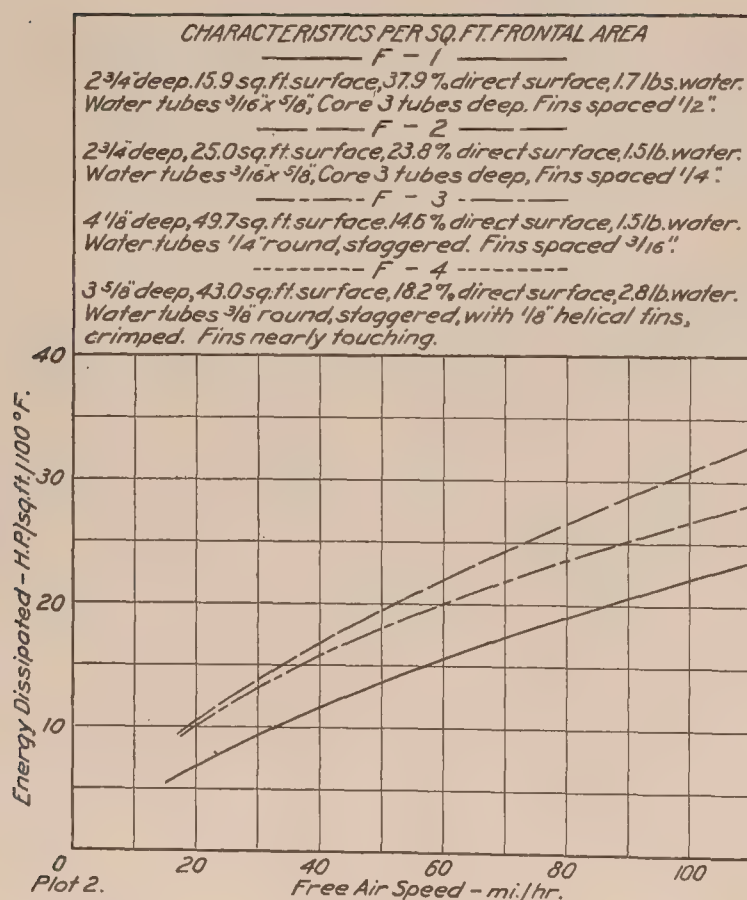 CHARACTERISTICS PER SQ.FT.FRONTAL AREA
F - 1
2 3/4" deep. 15.9 sq.ft. surface, 37.9% direct surface, 1.7 lbs. water.
Water tubes 3/16" x 5/8", Core 3 tubes deep. Fins spaced 1/2".
F - 2
2 3/4" deep, 25.0 sq.ft. surface, 23.8% direct surface, 1.5 lb. water.
Water tubes 3/16" x 5/8", Core 3 tubes deep, Fins spaced 1/4".
F - 3
4 1/8" deep, 49.7 sq.ft. surface. 14.6% direct surface, 1.5 lb. water.
Water tubes 1/4" round, staggered. Fins spaced 3/16".
F - 4
3 5/8" deep, 43.0 sq.ft. surface, 18.2% direct surface, 2.8 lb. water.
Water tubes 3/8" round, staggered, with 1/8" helical fins,
crimped. Fins nearly touching.
40
30
20
10
0
Energy Dissipated - H.P./sq.ft./100°F.
20 40 60 80 100
Plot 2.
Free Air Speed - mi./hr.